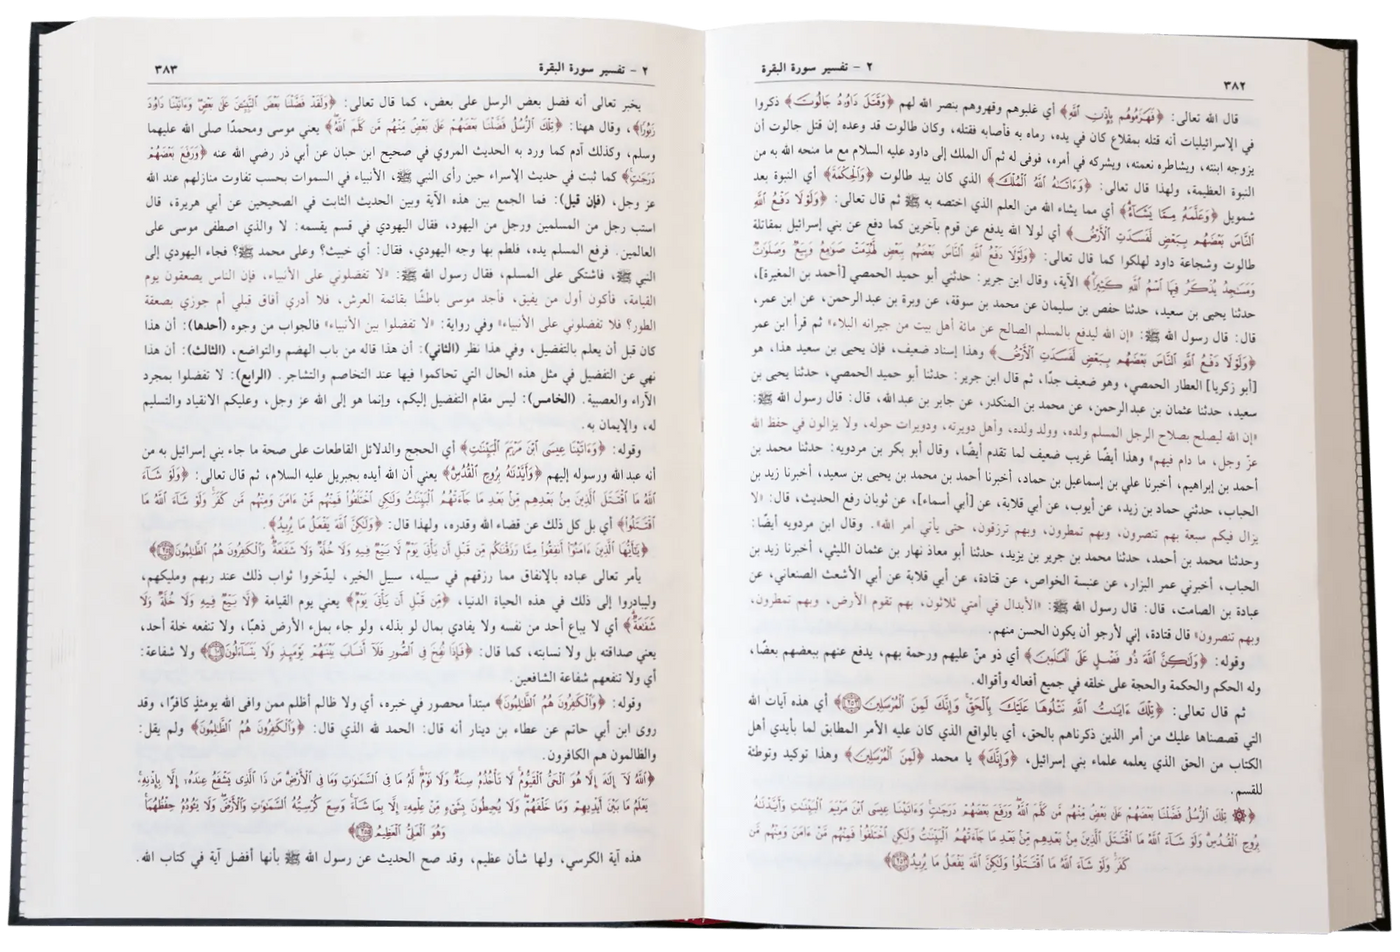 ٣٨٢
٢ - تفسير سورة البقرة
قال الله تعالى: ﴿فَهَزَمُوهُم بِإِذْنِ اللَّهِ﴾ أي غلبوهم وقهروهم بنصر الله لهم ﴿وَقَتَلَ دَاوُدُ جَالُوتَ﴾ ذكروا
في الإسرائيليات أنه قتله بمقلاع كان في يده، رماه به فأصابه فقتله، وكان طالوت قد وعده إن قتل جالوت أن
يزوجه ابنته، ويشاطره نعمته، ويشركه في أمره، فوفى له ثم آل الملك إلى داود عليه السلام مع ما منحه الله به من
النبوة العظيمة، ولهذا قال تعالى: ﴿وَءَاتَىٰهُ اللَّهُ الْمُلْكَ﴾ الذي كان بيد طالوت ﴿وَالْحِكْمَةَ﴾ أي النبوة بعد
شمويل ﴿وَعَلَّمَهُ مِمَّا يَشَاءُ﴾ أي مما يشاء الله من العلم الذي اختصه به ﷺ ثم قال تعالى: ﴿وَلَوْلَا دَفْعُ اللَّهِ
النَّاسَ بَعْضَهُم بِبَعْضٍ لَفَسَدَتِ الْأَرْضُ﴾ أي لولا الله يدفع عن قوم بآخرين كما دفع عن بني إسرائيل بمقاتلة
طالوت وشجاعة داود لهلكوا كما قال تعالى: ﴿وَلَوْلَا دَفْعُ اللَّهِ النَّاسَ بَعْضَهُم بِبَعْضٍ لَهُدِّمَتْ صَوَامِعُ وَبِيَعٌ وَصَلَوَاتٌ
وَمَسَاجِدُ يُذْكَرُ فِيهَا اسْمُ اللَّهِ كَثِيرًا﴾ الآية، وقال ابن جرير: حدثني أبو حميد الحمصي [أحمد بن المغيرة]،
حدثنا يحيى بن سعيد، حدثنا حفص بن سليمان عن محمد بن سوقة، عن وبرة بن عبد الرحمن، عن ابن عمر،
قال: قال رسول الله ﷺ: «إن الله ليدفع بالمسلم الصالح عن مائة أهل بيت من جيرانه البلاء» ثم قرأ ابن عمر
﴿وَلَوْلَا دَفْعُ اللَّهِ النَّاسَ بَعْضَهُم بِبَعْضٍ لَفَسَدَتِ الْأَرْضُ﴾ وهذا إسناد ضعيف، فإن يحيى بن سعيد هذا، هو
[أبو زكريا] العطار الحمصي، وهو ضعيف جدًا، ثم قال ابن جرير: حدثنا أبو حميد الحمصي، حدثنا يحيى بن
سعيد، حدثنا عثمان بن عبد الرحمن، عن محمد بن المنكدر، عن جابر بن عبدالله، قال: قال رسول الله ﷺ:
«إن الله ليصلح بصلاح الرجل المسلم ولده، وولد ولده، وأهل دويرته، ودويرات حوله، ولا يزالون في حفظ الله
عزّ وجل، ما دام فيهم» وهذا أيضًا غريب ضعيف لما تقدم أيضًا، وقال أبو بكر بن مردويه: حدثنا محمد بن
أحمد بن إبراهيم، أخبرنا علي بن إسماعيل بن حماد، أخبرنا أحمد بن محمد بن يحيى بن سعيد، أخبرنا زيد بن
الحباب، حدثني حماد بن زيد، عن أيوب، عن أبي قلابة، عن [أبي أسماء]، عن ثوبان رفع الحديث، قال: «لا
يزال فيكم سبعة بهم تنصرون، وبهم تمطرون، وبهم ترزقون، حتى يأتي أمر الله». وقال ابن مردويه أيضًا:
وحدثنا محمد بن أحمد، حدثنا محمد بن جرير بن يزيد، حدثنا أبو معاذ نهار بن عثمان الليثي، أخبرنا زيد بن
الحباب، أخبرني عمر البزار، عن عنبسة الخواص، عن قتادة، عن أبي قلابة عن أبي الأشعث الصنعاني، عن
عبادة بن الصامت، قال: قال رسول الله ﷺ: «الأبدال في أمتي ثلاثون، بهم تقوم الأرض، وبهم تمطرون،
وبهم تنصرون» قال قتادة، إني لأرجو أن يكون الحسن منهم.
وقوله: ﴿وَلَٰكِنَّ اللَّهَ ذُو فَضْلٍ عَلَى الْعَالَمِينَ﴾ أي ذو منّ عليهم ورحمة بهم، يدفع عنهم ببعضهم بعضًا،
وله الحكم والحكمة والحجة على خلقه في جميع أفعاله وأقواله.
ثم قال تعالى: ﴿تِلْكَ ءَايَاتُ اللَّهِ نَتْلُوهَا عَلَيْكَ بِالْحَقِّ وَإِنَّكَ لَمِنَ الْمُرْسَلِينَ ٢٥٢﴾ أي هذه آيات الله
التي قصصناها عليك من أمر الذين ذكرناهم بالحق، أي بالواقع الذي كان عليه الأمر المطابق لما بأيدي أهل
الكتاب من الحق الذي يعلمه علماء بني إسرائيل، ﴿وَإِنَّكَ﴾ يا محمد ﴿لَمِنَ الْمُرْسَلِينَ﴾ وهذا توكيد وتوطئة
للقسم.
﴿۞ تِلْكَ الرُّسُلُ فَضَّلْنَا بَعْضَهُمْ عَلَىٰ بَعْضٍ مِّنْهُم مَّن كَلَّمَ اللَّهُ وَرَفَعَ بَعْضَهُمْ دَرَجَاتٍ وَءَاتَيْنَا عِيسَى ابْنَ مَرْيَمَ الْبَيِّنَاتِ وَأَيَّدْنَاهُ
بِرُوحِ الْقُدُسِ وَلَوْ شَاءَ اللَّهُ مَا اقْتَتَلَ الَّذِينَ مِن بَعْدِهِم مِّن بَعْدِ مَا جَاءَتْهُمُ الْبَيِّنَاتُ وَلَٰكِنِ اخْتَلَفُوا فَمِنْهُم مَّنْ ءَامَنَ وَمِنْهُم مَّن
كَفَرَ وَلَوْ شَاءَ اللَّهُ مَا اقْتَتَلُوا وَلَٰكِنَّ اللَّهَ يَفْعَلُ مَا يُرِيدُ ٢٥٣﴾
٢ - تفسير سورة البقرة
٣٨٣
يخبر تعالى أنه فضل بعض الرسل على بعض، كما قال تعالى: ﴿وَلَقَدْ فَضَّلْنَا بَعْضَ النَّبِيِّينَ عَلَىٰ بَعْضٍ وَءَاتَيْنَا دَاوُدَ
زَبُورًا﴾، وقال ههنا: ﴿تِلْكَ الرُّسُلُ فَضَّلْنَا بَعْضَهُمْ عَلَىٰ بَعْضٍ مِّنْهُم مَّن كَلَّمَ اللَّهُ﴾ يعني موسى ومحمدًا صلى الله عليهما
وسلم، وكذلك آدم كما ورد به الحديث المروي في صحيح ابن حبان عن أبي ذر رضي الله عنه ﴿وَرَفَعَ بَعْضَهُمْ
دَرَجَاتٍ﴾ كما ثبت في حديث الإسراء حين رأى النبي ﷺ، الأنبياء في السموات بحسب تفاوت منازلهم عند الله
عز وجل، (فإن قيل): فما الجمع بين هذه الآية وبين الحديث الثابت في الصحيحين عن أبي هريرة، قال
استب رجل من المسلمين ورجل من اليهود، فقال اليهودي في قسم يقسمه: لا والذي اصطفى موسى على
العالمين. فرفع المسلم يده، فلطم بها وجه اليهودي، فقال: أي خبيث؟ وعلى محمد ﷺ؟ فجاء اليهودي إلى
النبي ﷺ، فاشتكى على المسلم، فقال رسول الله ﷺ: «لا تفضلوني على الأنبياء، فإن الناس يصعقون يوم
القيامة، فأكون أول من يفيق، فأجد موسى باطشًا بقائمة العرش، فلا أدري أفاق قبلي أم جوزي بصعقة
الطور؟ فلا تفضلوني على الأنبياء» وفي رواية: «لا تفضلوا بين الأنبياء» فالجواب من وجوه (أحدها): أن هذا
كان قبل أن يعلم بالتفضيل، وفي هذا نظر (الثاني): أن هذا قاله من باب الهضم والتواضع، (الثالث): أن هذا
نهي عن التفضيل في مثل هذه الحال التي تحاكموا فيها عند التخاصم والتشاجر. (الرابع): لا تفضلوا بمجرد
الآراء والعصبية. (الخامس): ليس مقام التفضيل إليكم، وإنما هو إلى الله عز وجل، وعليكم الانقياد والتسليم
له، والإيمان به.
وقوله: ﴿وَءَاتَيْنَا عِيسَى ابْنَ مَرْيَمَ الْبَيِّنَاتِ﴾ أي الحجج والدلائل القاطعات على صحة ما جاء بني إسرائيل به من
أنه عبدالله ورسوله إليهم ﴿وَأَيَّدْنَاهُ بِرُوحِ الْقُدُسِ﴾ يعني أن الله أيده بجبريل عليه السلام، ثم قال تعالى: ﴿وَلَوْ شَاءَ
اللَّهُ مَا اقْتَتَلَ الَّذِينَ مِن بَعْدِهِم مِّن بَعْدِ مَا جَاءَتْهُمُ الْبَيِّنَاتُ وَلَٰكِنِ اخْتَلَفُوا فَمِنْهُم مَّنْ ءَامَنَ وَمِنْهُم مَّن كَفَرَ وَلَوْ شَاءَ اللَّهُ مَا
اقْتَتَلُوا﴾ أي بل كل ذلك عن قضاء الله وقدره، ولهذا قال: ﴿وَلَٰكِنَّ اللَّهَ يَفْعَلُ مَا يُرِيدُ﴾.
﴿يَا أَيُّهَا الَّذِينَ ءَامَنُوا أَنفِقُوا مِمَّا رَزَقْنَاكُم مِّن قَبْلِ أَن يَأْتِيَ يَوْمٌ لَّا بَيْعٌ فِيهِ وَلَا خُلَّةٌ وَلَا شَفَاعَةٌ وَالْكَافِرُونَ هُمُ الظَّالِمُونَ ٢٥٤﴾
يأمر تعالى عباده بالإنفاق مما رزقهم في سبيله، سبيل الخير، ليدّخروا ثواب ذلك عند ربهم ومليكهم،
وليبادروا إلى ذلك في هذه الحياة الدنيا، ﴿مِّن قَبْلِ أَن يَأْتِيَ يَوْمٌ﴾ يعني يوم القيامة ﴿لَّا بَيْعٌ فِيهِ وَلَا خُلَّةٌ وَلَا
شَفَاعَةٌ﴾ أي لا يباع أحد من نفسه ولا يفادي بمال لو بذله، ولو جاء بملء الأرض ذهبًا، ولا تنفعه خلة أحد،
يعني صداقته بل ولا نسابته، كما قال: ﴿فَإِذَا نُفِخَ فِي الصُّورِ فَلَا أَنسَابَ بَيْنَهُمْ يَوْمَئِذٍ وَلَا يَتَسَاءَلُونَ﴾ ولا شفاعة:
أي ولا تنفعهم شفاعة الشافعين.
وقوله: ﴿وَالْكَافِرُونَ هُمُ الظَّالِمُونَ﴾ مبتدأ محصور في خبره، أي ولا ظالم أظلم ممن وافى الله يومئذٍ كافرًا، وقد
روى ابن أبي حاتم عن عطاء بن دينار أنه قال: الحمد لله الذي قال: ﴿وَالْكَافِرُونَ هُمُ الظَّالِمُونَ﴾ ولم يقل:
والظالمون هم الكافرون.
﴿اللَّهُ لَا إِلَٰهَ إِلَّا هُوَ الْحَيُّ الْقَيُّومُ لَا تَأْخُذُهُ سِنَةٌ وَلَا نَوْمٌ لَّهُ مَا فِي السَّمَاوَاتِ وَمَا فِي الْأَرْضِ مَن ذَا الَّذِي يَشْفَعُ عِندَهُ إِلَّا بِإِذْنِهِ
يَعْلَمُ مَا بَيْنَ أَيْدِيهِمْ وَمَا خَلْفَهُمْ وَلَا يُحِيطُونَ بِشَيْءٍ مِّنْ عِلْمِهِ إِلَّا بِمَا شَاءَ وَسِعَ كُرْسِيُّهُ السَّمَاوَاتِ وَالْأَرْضَ وَلَا يَئُودُهُ حِفْظُهُمَا
وَهُوَ الْعَلِيُّ الْعَظِيمُ ٢٥٥﴾
هذه آية الكرسي، ولها شأن عظيم، وقد صح الحديث عن رسول الله ﷺ بأنها أفضل آية في كتاب الله.